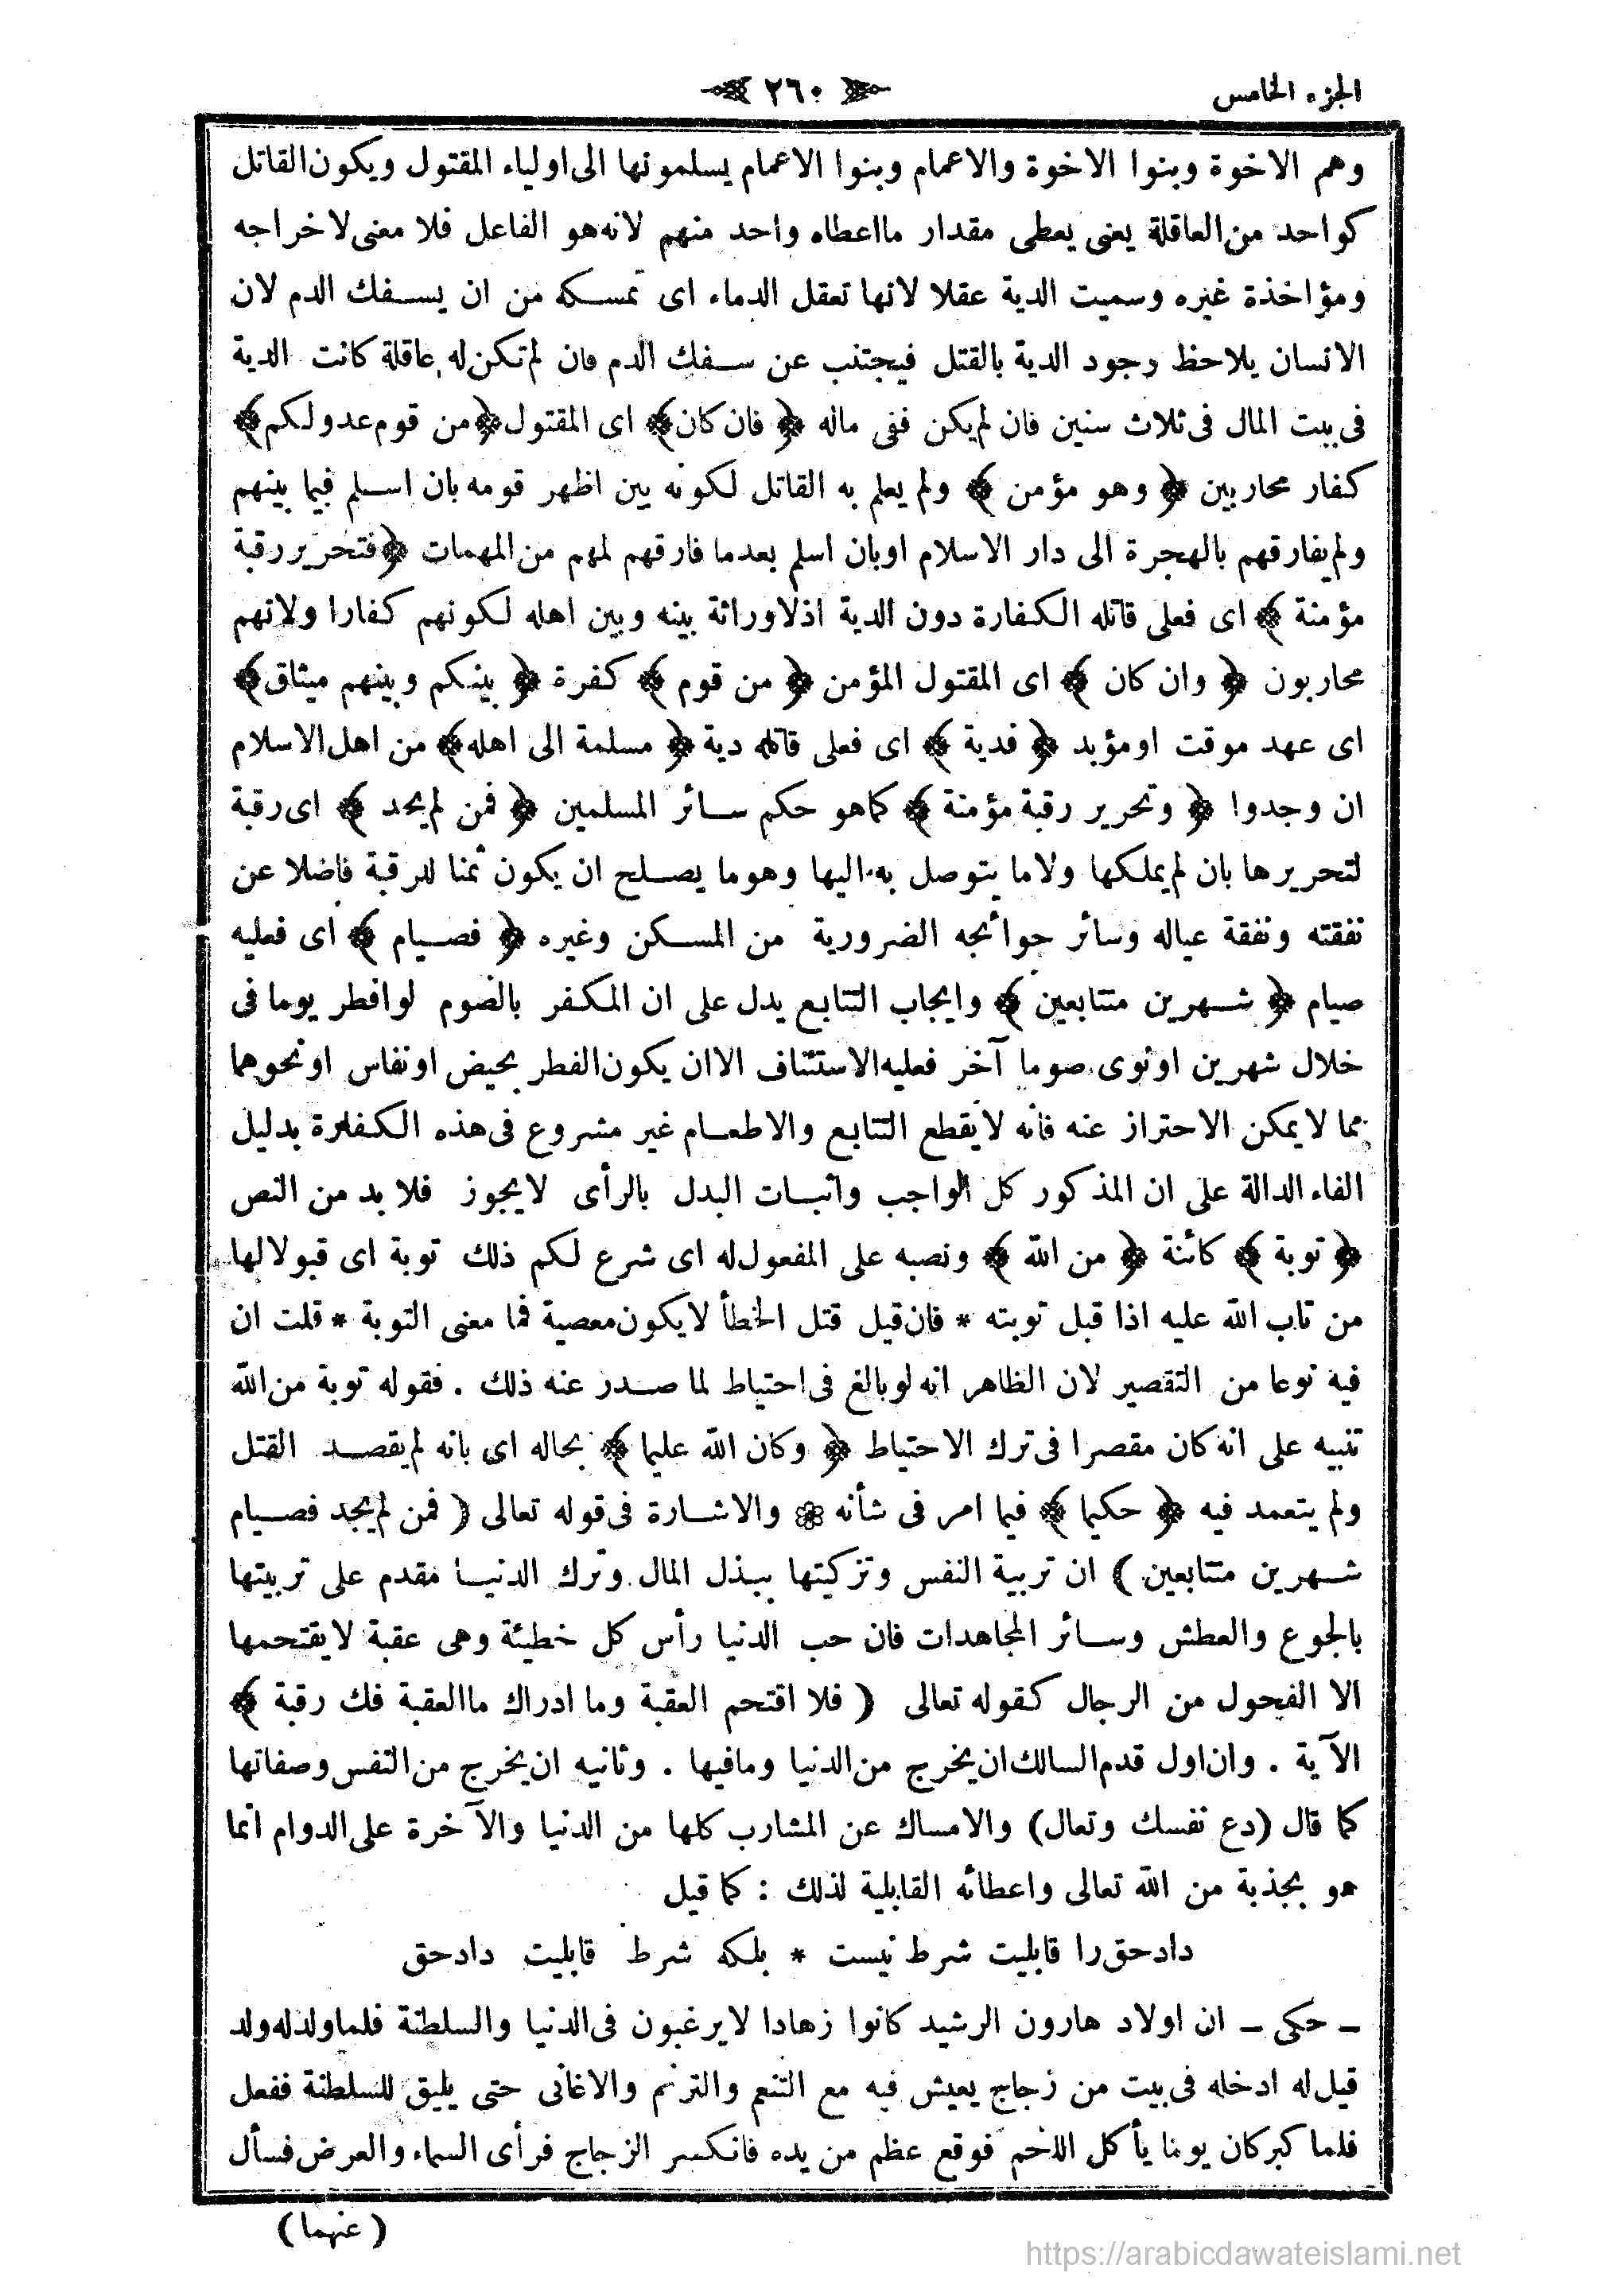 الجزء الخامس
﴿ ٢٦٠ ﴾
وهم الاخوة وبنوا الاخوة والاعمام وبنوا الاعمام يسلمونها الى اولياء المقتول ويكون القاتل
كواحد من العاقلة يعنى يعطى مقدار ما اعطاه واحد منهم لانه هو الفاعل فلا معنى لاخراجه
ومؤاخذة غيره وسميت الدية عقلا لانها تعقل الدماء اى تمسكه من ان يسفك الدم لان
الانسان يلاحظ وجود الدية بالقتل فيجتنب عن سفك الدم فان لم تكن له عاقلة كانت الدية
فى بيت المال فى ثلاث سنين فان لم يكن ففى ماله ﴿ فان كان ﴾ اى المقتول ﴿ من قوم عدولكم ﴾
كفار محاربين ﴿ وهو مؤمن ﴾ ولم يعلم به القاتل لكونه بين اظهر قومه بان اسلم فيما بينهم
ولم يفارقهم بالهجرة الى دار الاسلام اوبان اسلم بعدما فارقهم لمهم من المهمات ﴿ فتحرير رقبة
مؤمنة ﴾ اى فعلى قاتله الكفارة دون الدية اذلاوراثة بينه وبين اهله لكونهم كفارا ولانهم
محاربون ﴿ وان كان ﴾ اى المقتول المؤمن ﴿ من قوم ﴾ كفرة ﴿ بينكم وبينهم ميثاق ﴾
اى عهد موقت اومؤبد ﴿ فدية ﴾ اى فعلى قاتله دية ﴿ مسلمة الى اهله ﴾ من اهل الاسلام
ان وجدوا ﴿ وتحرير رقبة مؤمنة ﴾ كماهو حكم سائر المسلمين ﴿ فمن لم يجد ﴾ اى رقبة
لتحريرها بان لم يملكها ولاما يتوصل به اليها وهوما يصلح ان يكون ثمنا للرقبة فاضلا عن
نفقته ونفقة عياله وسائر حوائجه الضرورية من المسكن وغيره ﴿ فصيام ﴾ اى فعليه
صيام ﴿ شهرين متتابعين ﴾ وايجاب التتابع يدل على ان المكفر بالصوم لوافطر يوما فى
خلال شهرين اونوى صوما آخر فعليه الاستئناف الاان يكون الفطر بحيض اونفاس اونحوهما
مما لايمكن الاحتراز عنه فانه لايقطع التتابع والاطعام غير مشروع فى هذه الكفارة بدليل
الفاء الدالة على ان المذكور كل الواجب واثبات البدل بالرأى لايجوز فلا بد من النص
﴿ توبة ﴾ كائنة ﴿ من الله ﴾ ونصبه على المفعول له اى شرع لكم ذلك توبة اى قبولالها
من تاب الله عليه اذا قبل توبته * فان قيل قتل الخطأ لايكون معصية فما معنى التوبة * قلت ان
فيه نوعا من التقصير لان الظاهر انه لوبالغ فى احتياط لما صدر عنه ذلك . فقوله توبة من الله
تنبيه على انه كان مقصرا فى ترك الاحتياط ﴿ وكان الله عليما ﴾ بحاله اى بانه لم يقصد القتل
ولم يتعمد فيه ﴿ حكيما ﴾ فيما امر فى شأنه ❁ والاشارة فى قوله تعالى ( فمن لم يجد فصيام
شهرين متتابعين ) ان تربية النفس وتزكيتها ببذل المال وترك الدنيا مقدم على تربيتها
بالجوع والعطش وسائر المجاهدات فان حب الدنيا رأس كل خطيئة وهى عقبة لايقتحمها
الا الفحول من الرجال كقوله تعالى ( فلا اقتحم العقبة وما ادراك ما العقبة فك رقبة ﴾
الآية . وان اول قدم السالك ان يخرج من الدنيا ومافيها . وثانيه ان يخرج من النفس وصفاتها
كما قال (دع نفسك وتعال) والامساك عن المشارب كلها من الدنيا والآخرة على الدوام انما
هو بجذبة من الله تعالى واعطائه القابلية لذلك : كما قيل
دادحق را قابليت شرط نيست * بلكه شرط قابليت دادحق
ـ حكى ـ ان اولاد هارون الرشيد كانوا زهادا لايرغبون فى الدنيا والسلطنة فلما ولد له ولد
قيل له ادخله فى بيت من زجاج يعيش فيه مع التنعم والترنم والاغانى حتى يليق للسلطنة ففعل
فلما كبر كان يوما يأكل اللحم فوقع عظم من يده فانكسر الزجاج فرأى السماء والعرض فسأل
( عنهما )
https://arabicdawateislami.net